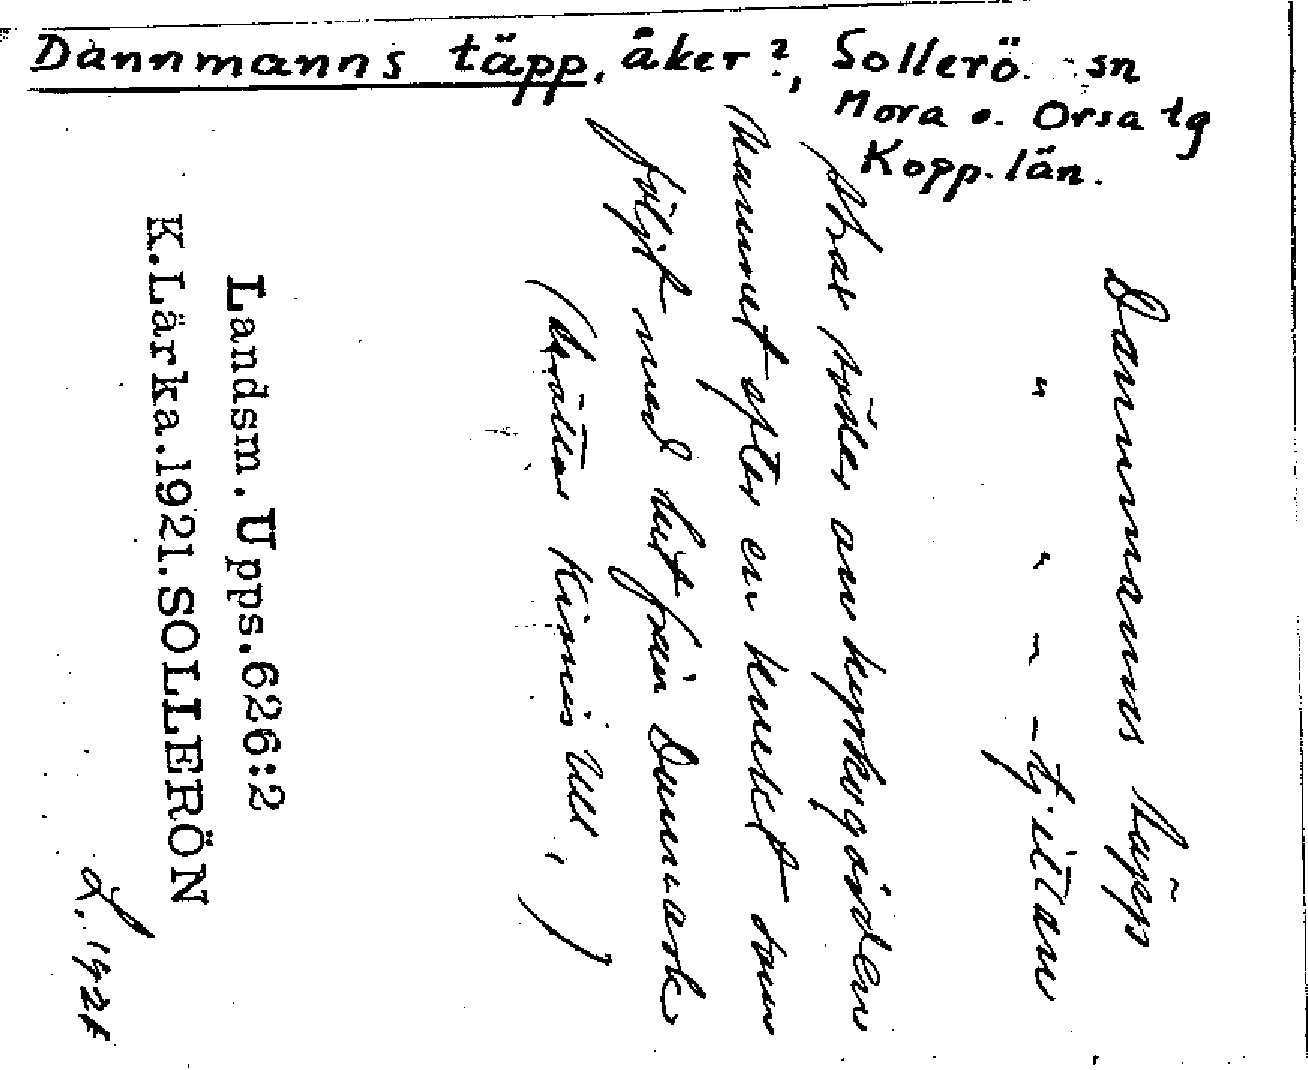 Dannmanns täpp, åker?, Sollerö sn
Mora o. Orsa tg
Kopp. län.
Dannmanns täpp
" " " -tj.ittam
Strax söder om kyrkogården
Namnet efter en knekt som
följt med hit från Danmark
(berättar Kirris Ull, )
Landsm. Upps. 626:2
K.Lärka.1921.SOLLERÖN
L. 1921